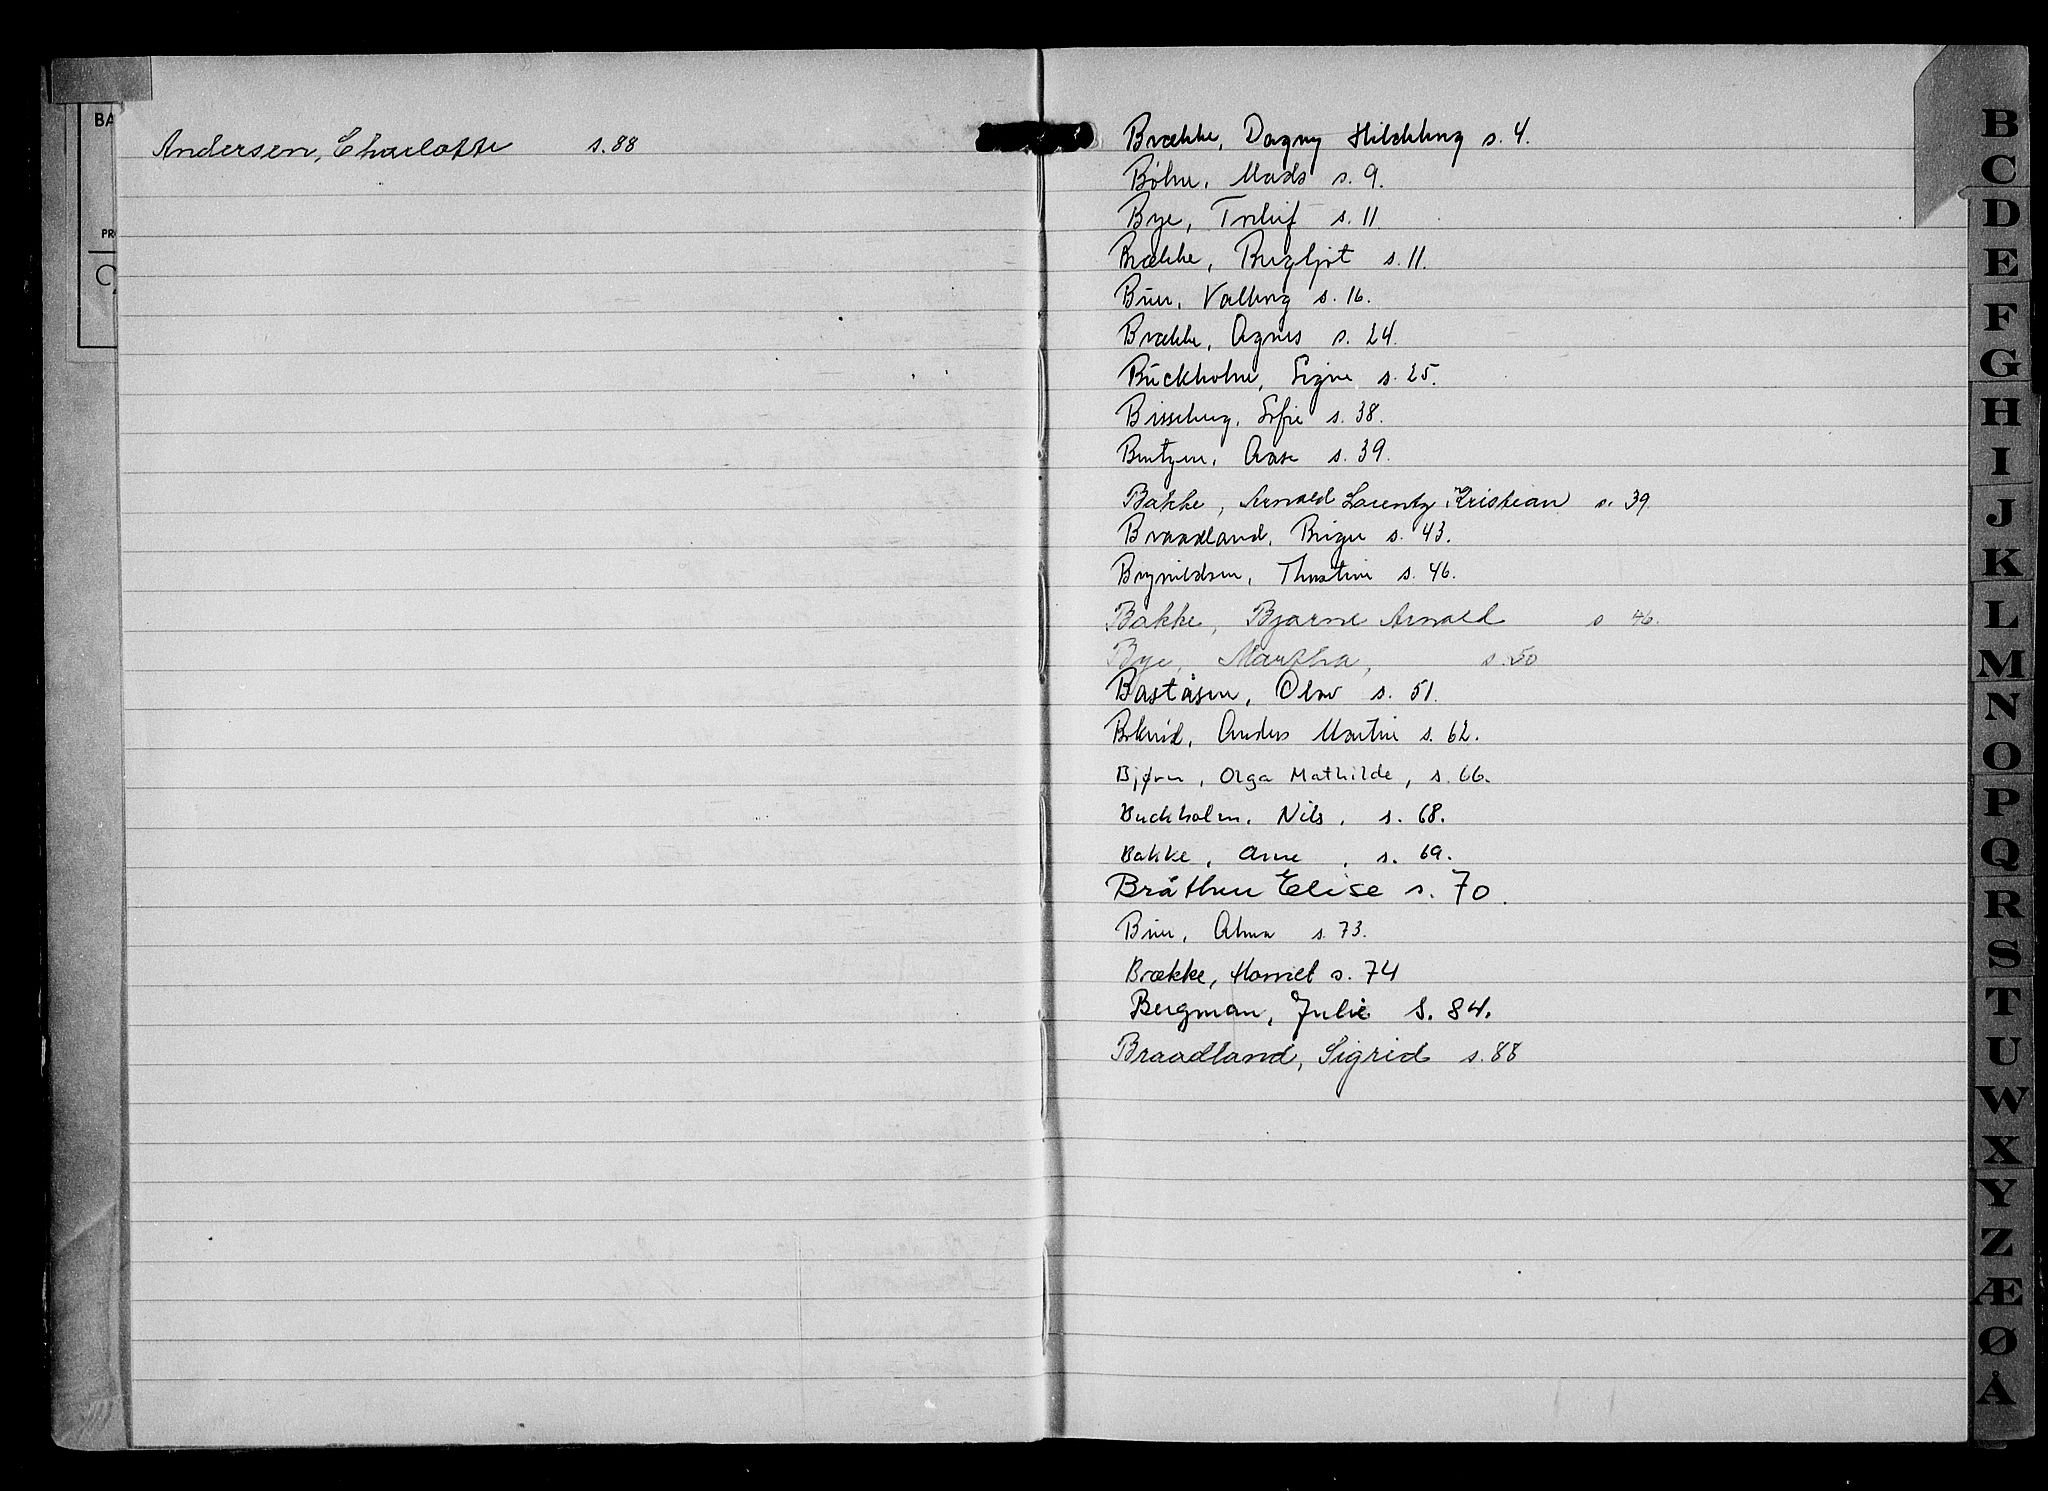 BA
PR
Andersen, Charlotte s. 88
Brække, Dagny s. 4.
Böhn, Mads s. 9.
Bye, Torleif s. 11.
Brække, Bergljot s. 11.
Buer, Valborg s. 16.
Brække, Agnes s. 24.
Buckholm, Signe s. 25.
Bisseberg, Sofie s. 38.
Berntzen, Aase s. 39.
Bakke, Arnold Laurentz Kristian s. 39
Braadland, Birger s. 43.
Brynildsen, Thorstein s. 46.
Bakke, Bjarne Arnold s 46.
Bye, Martha, s. 50
Baståsen, Olav s. 51.
Anders Martin s. 62.
Bjørn, Olga Mathilde, s. 66.
Buckholm, Nils, s. 68.
Bakke, Arne, s. 69.
Bråthen Elise s. 70.
Buer, Alma s. 73.
Brække, Harriet s. 74
Bergman, Julie S. 84.
Braadland, Sigrid s. 88
B
C
D
E
F
G
H
I
J
K
L
M
N
O
P
Q
R
S
T
U
W
X
Y
Z
Æ
Ø
Å